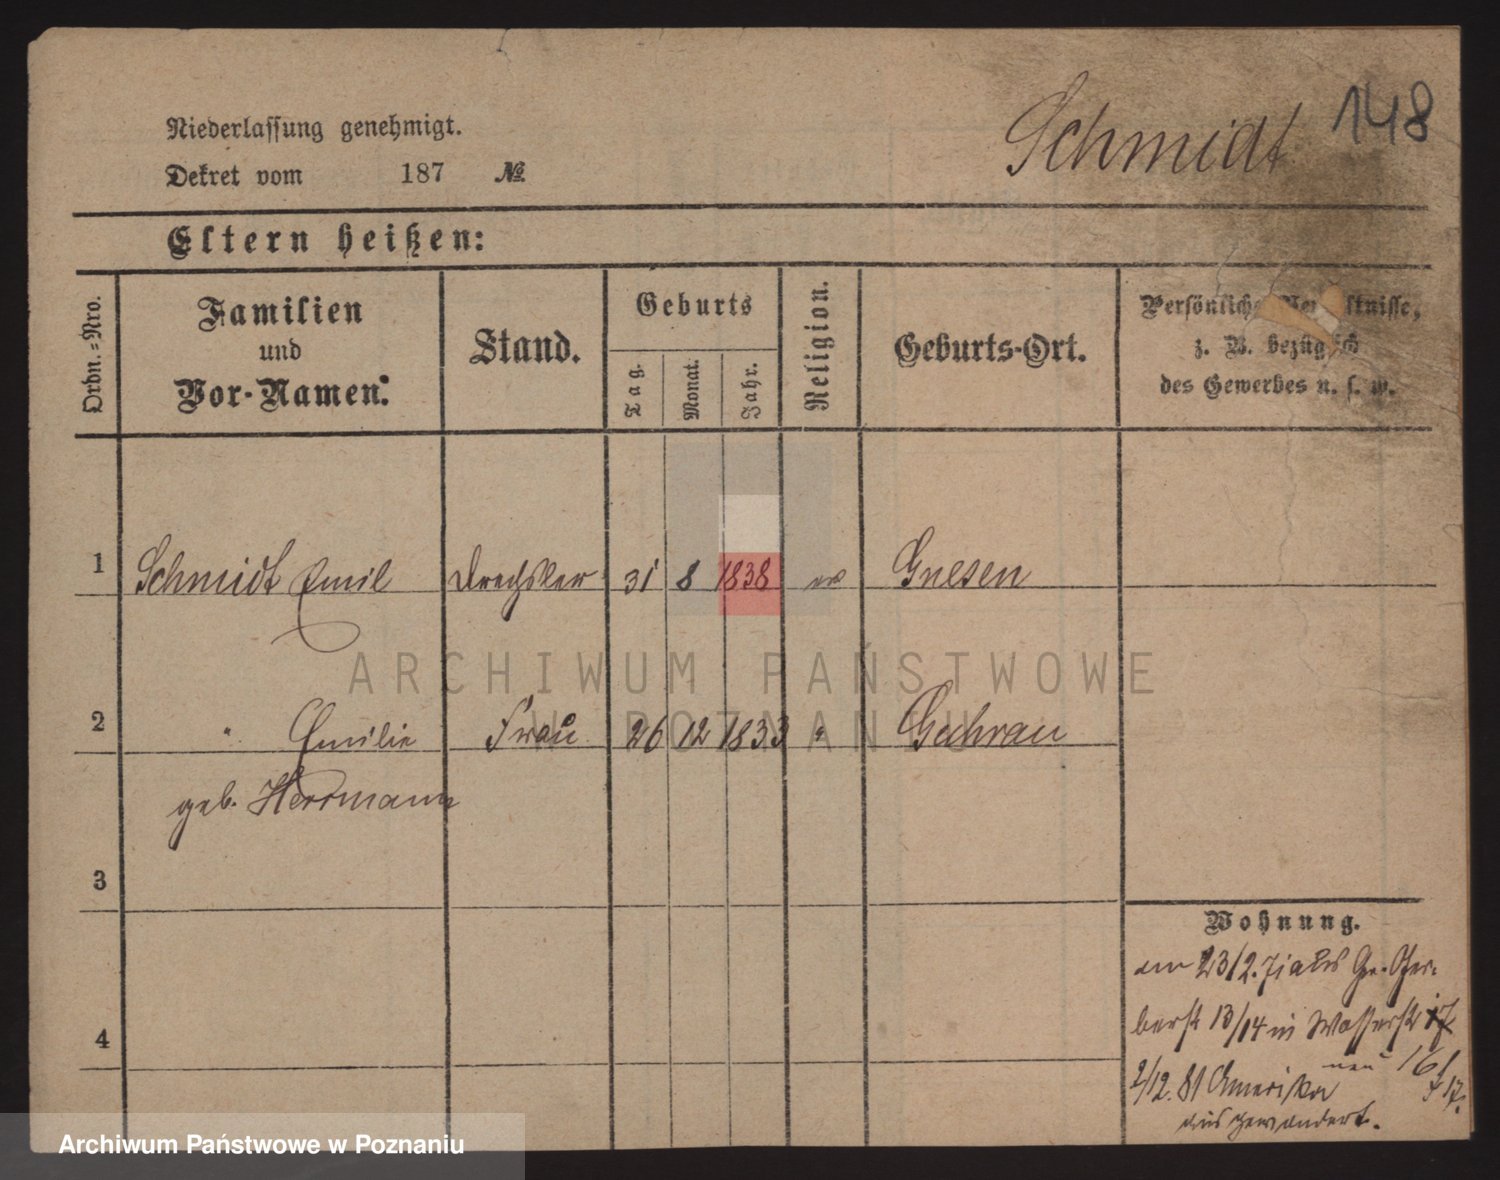 Schmidt 148
Niederlassung genehmigt.
Dekret vom 187 №
Eltern heißen:
Ordn.-Nro.
Familien
und
Vor-Namen:
Stand.
Geburts
Tag.
Monat.
Jahr.
Religion.
Geburts-Ort.
Persönliche
z. B. bezüglich
des Gewerbes u. s. w.
1 Schmidt Emil Drechsler 31 8 1838 ev Gnesen
ARCHIWUM PAŃSTWOWE
W POZNANIU
2 " Emilie Frau 26 12 1833 " Guhrau
geb. Herrmann
3
4
Wohnung.
am 23/2. Gr. Ger-
berst 13/14 in Wasserstr 17
neu 16/
2/12. 81 Amerika 17.
ausgewandert.
Archiwum Państwowe w Poznaniu